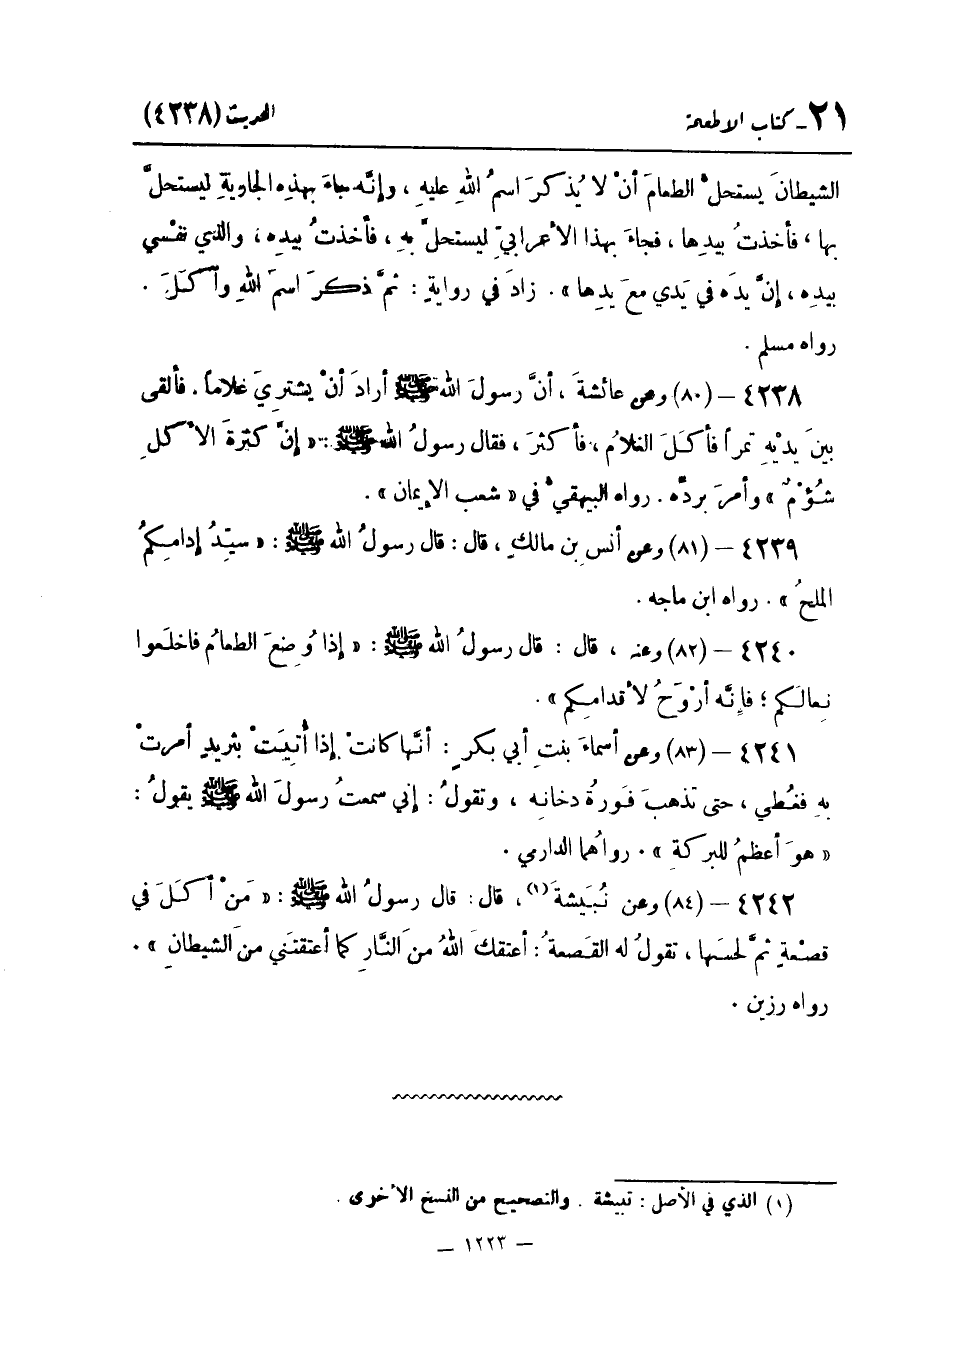 ٢١ـ كتاب الأطعمة
الحديث (٤٢٣٨)
الشيطانَ يستحلُّ الطعامَ أنْ لا يُذكرَ اسمُ اللهِ عليهِ ، وإنَّه جاءَ بهذِه الجاريةِ ليستحلَّ
بها ، فأخذتُ بيدِها ، فجاءَ بهذا الأعرابيِّ ليستحلَّ بهِ ، فأخذتُ بيدِه ، والذي نفْسي
بيدِه ، إنَّ يدَه في يَدي معَ يدِها » . زادَ في روايةٍ : ثمَّ ذكرَ اسمَ اللهِ وأكَلَ .
رواه مسلم .
٤٢٣٨ – (٨٠) وعن عائشةَ ، أنَّ رسولَ الله ﷺ أرادَ أنْ يشتريَ غلاماً . فألقى
بينَ يديْهِ تمراً فأكَلَ الغلامُ ، فأكثرَ ، فقال رسولُ الله ﷺ : « إنَّ كثرةَ الأكلِ
شُؤْمٌ » وأمرَ بردِّه . رواه البيهقيُّ في « شعب الإيمان » .
٤٢٣٩ – (٨١) وعن أنسِ بن مالكٍ ، قال : قال رسولُ الله ﷺ : « سيِّدُ إدامِكمُ
الملحُ » . رواه ابن ماجه .
٤٢٤٠ – (٨٢) وعنه ، قال : قال رسولُ الله ﷺ : « إذا وُضعَ الطعامُ فاخلَعوا
نِعالَكم ؛ فإِنَّه أرْوَحُ لأقدامِكم » .
٤٢٤١ – (٨٣) وعن أسماءَ بنتِ أبي بكرٍ : أنَّها كانتْ إذا أُتيَتْ بثريدٍ أمرتْ
بهِ فغُطي ، حتى تذهبَ فَورةُ دخانِه ، وتقولُ : إني سمعتُ رسولَ الله ﷺ يقولُ :
« هوَ أعظمُ للبركةِ » . رواهُما الدارمي .
٤٢٤٢ – (٨٤) وعن نُبَيشةَ (١) ، قال : قال رسولُ الله ﷺ : « مَنْ أكَلَ في
قصْعةٍ ثمَّ لحسَها ، تقولُ له القَصعةُ : أعتقكَ اللهُ منَ النَّارِ كما أعتقتَني منَ الشيطانِ » .
رواه رزين .
(١) الذي في الأصل : تبيشة . والتصحيح من النسخ الأخرى .
– ١٢٢٣ –